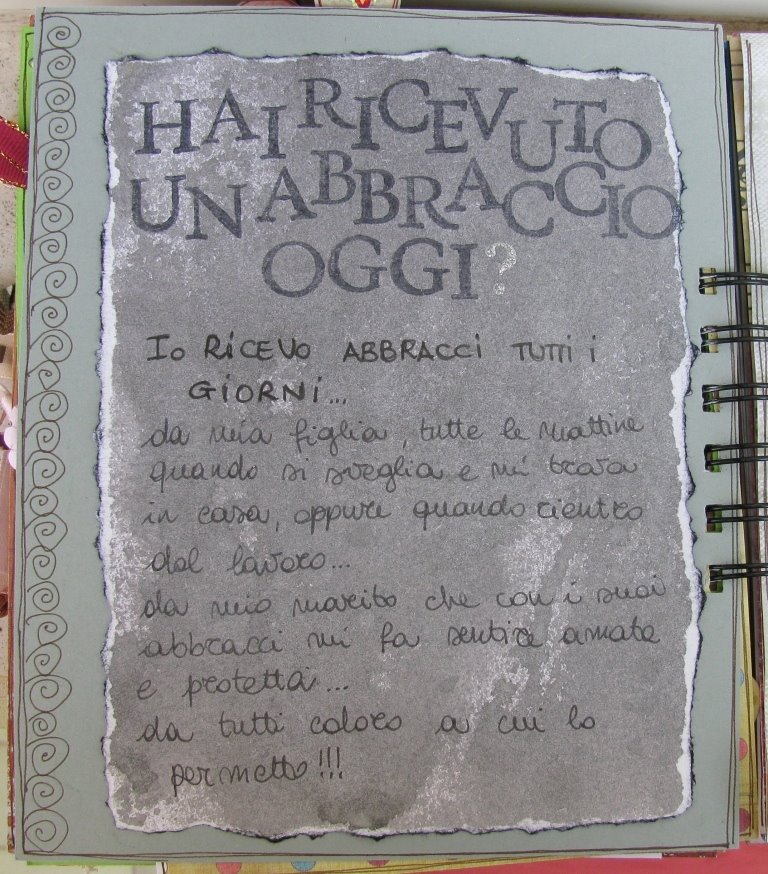 HAI RICEVUTO
UN ABBRACCIO
OGGI?
Io RiCEVO ABBRACCi TUTTI i
GiORNi...
da mia figlia, tutte le mattine
quando si sveglia e mi trova
in casa, oppure quando rientro
dal lavoro...
da mio marito che con i suoi
abbracci mi fa sentire amata
e protetta...
da tutti coloro a cui lo
permetto!!!